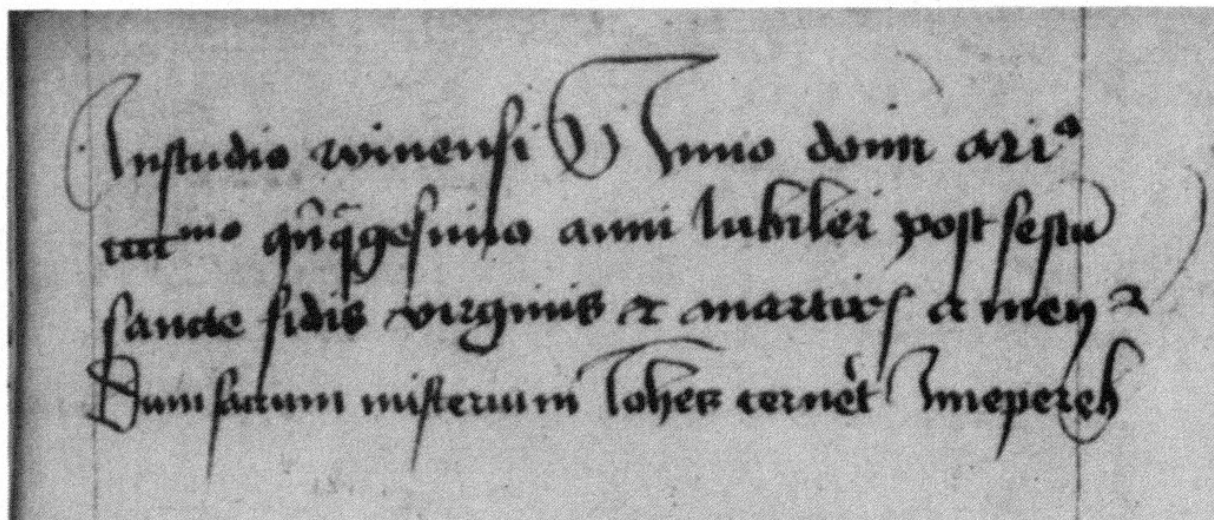 Instudio winensi Anno domi
ccccmo qn̄q̄gesimo anni Iubilei post festū
sancte fidis virginis et martiris et
Dum sacrum misterium Iohes